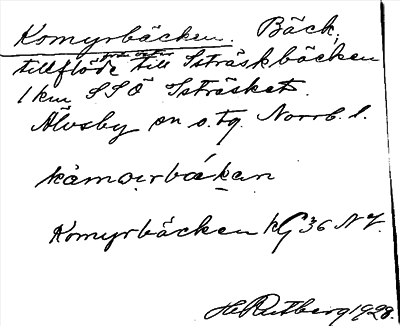 Komyrbäcken. Bäck,
tillflöde till Isträskbäcken
1 km SSÖ Isträsket.
Älvsby sn o. tg. Norrb. l.
kåmoırbákan
Komyrbäcken kG 36 NV.
H. Rutberg 1928.